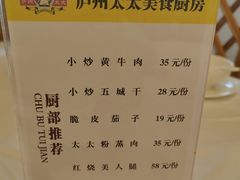 庐州太太美食厨房
厨部推荐
CHU BU TUI JIAN
小炒黄牛肉 35元/份
小炒五城干 28元/份
脆皮茄子 19元/份
太太粉蒸肉 35元/份
红烧美人腿 58元/份